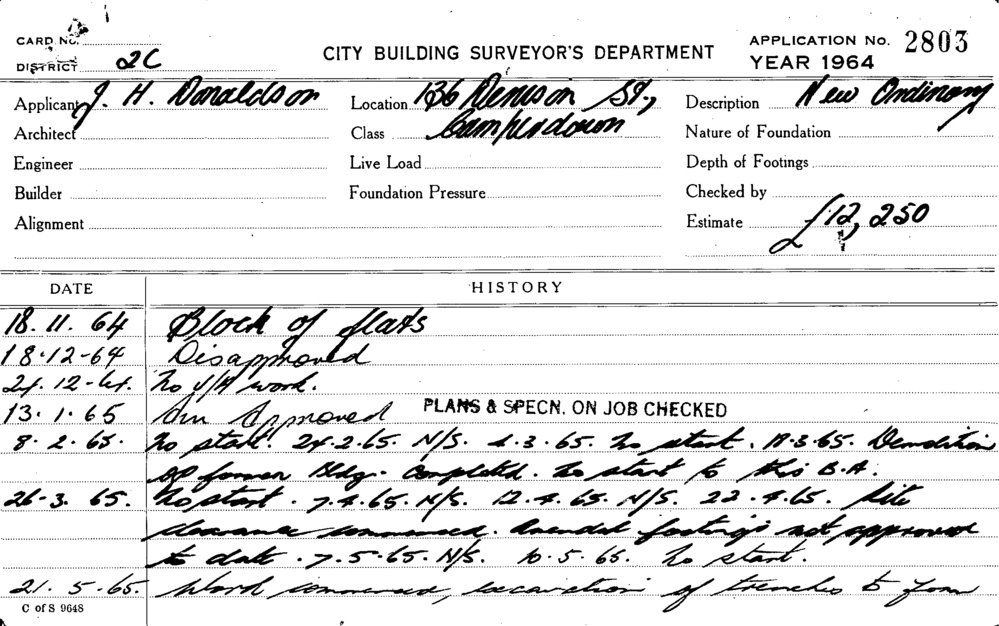 CARD No.
DISTRICT 2C
CITY BUILDING SURVEYOR'S DEPARTMENT
APPLICATION No. 2803
YEAR 1964
Applicant J. H. Donaldson
Location 136 Denison St.,
Description New Ordinary
Architect
Class Camperdown
Nature of Foundation
Engineer
Live Load
Depth of Footings
Builder
Foundation Pressure
Checked by
Alignment
Estimate £12,250
DATE HISTORY
18. 11. 64 Block of flats
18-12-64 Disapproved
24. 12-64. No work.
13. 1. 65 Approved PLANS & SPECN. ON JOB CHECKED
8. 2. 65. No start. 24-2.65. N/S. 3.65. No start. 3.65. Demolition
of former Bldg. Completed. No start to this B.A.
26-3. 65. No start. 7.4.65. N/S. 12.4.65. N/S. 22.4.65. Site
clearance commenced. Amended footings not approved
to date. 7.5.65. N/S. 10.5.65. No start.
21. 5. 65. Work commenced, excavation of trenches to form
C of S 9648